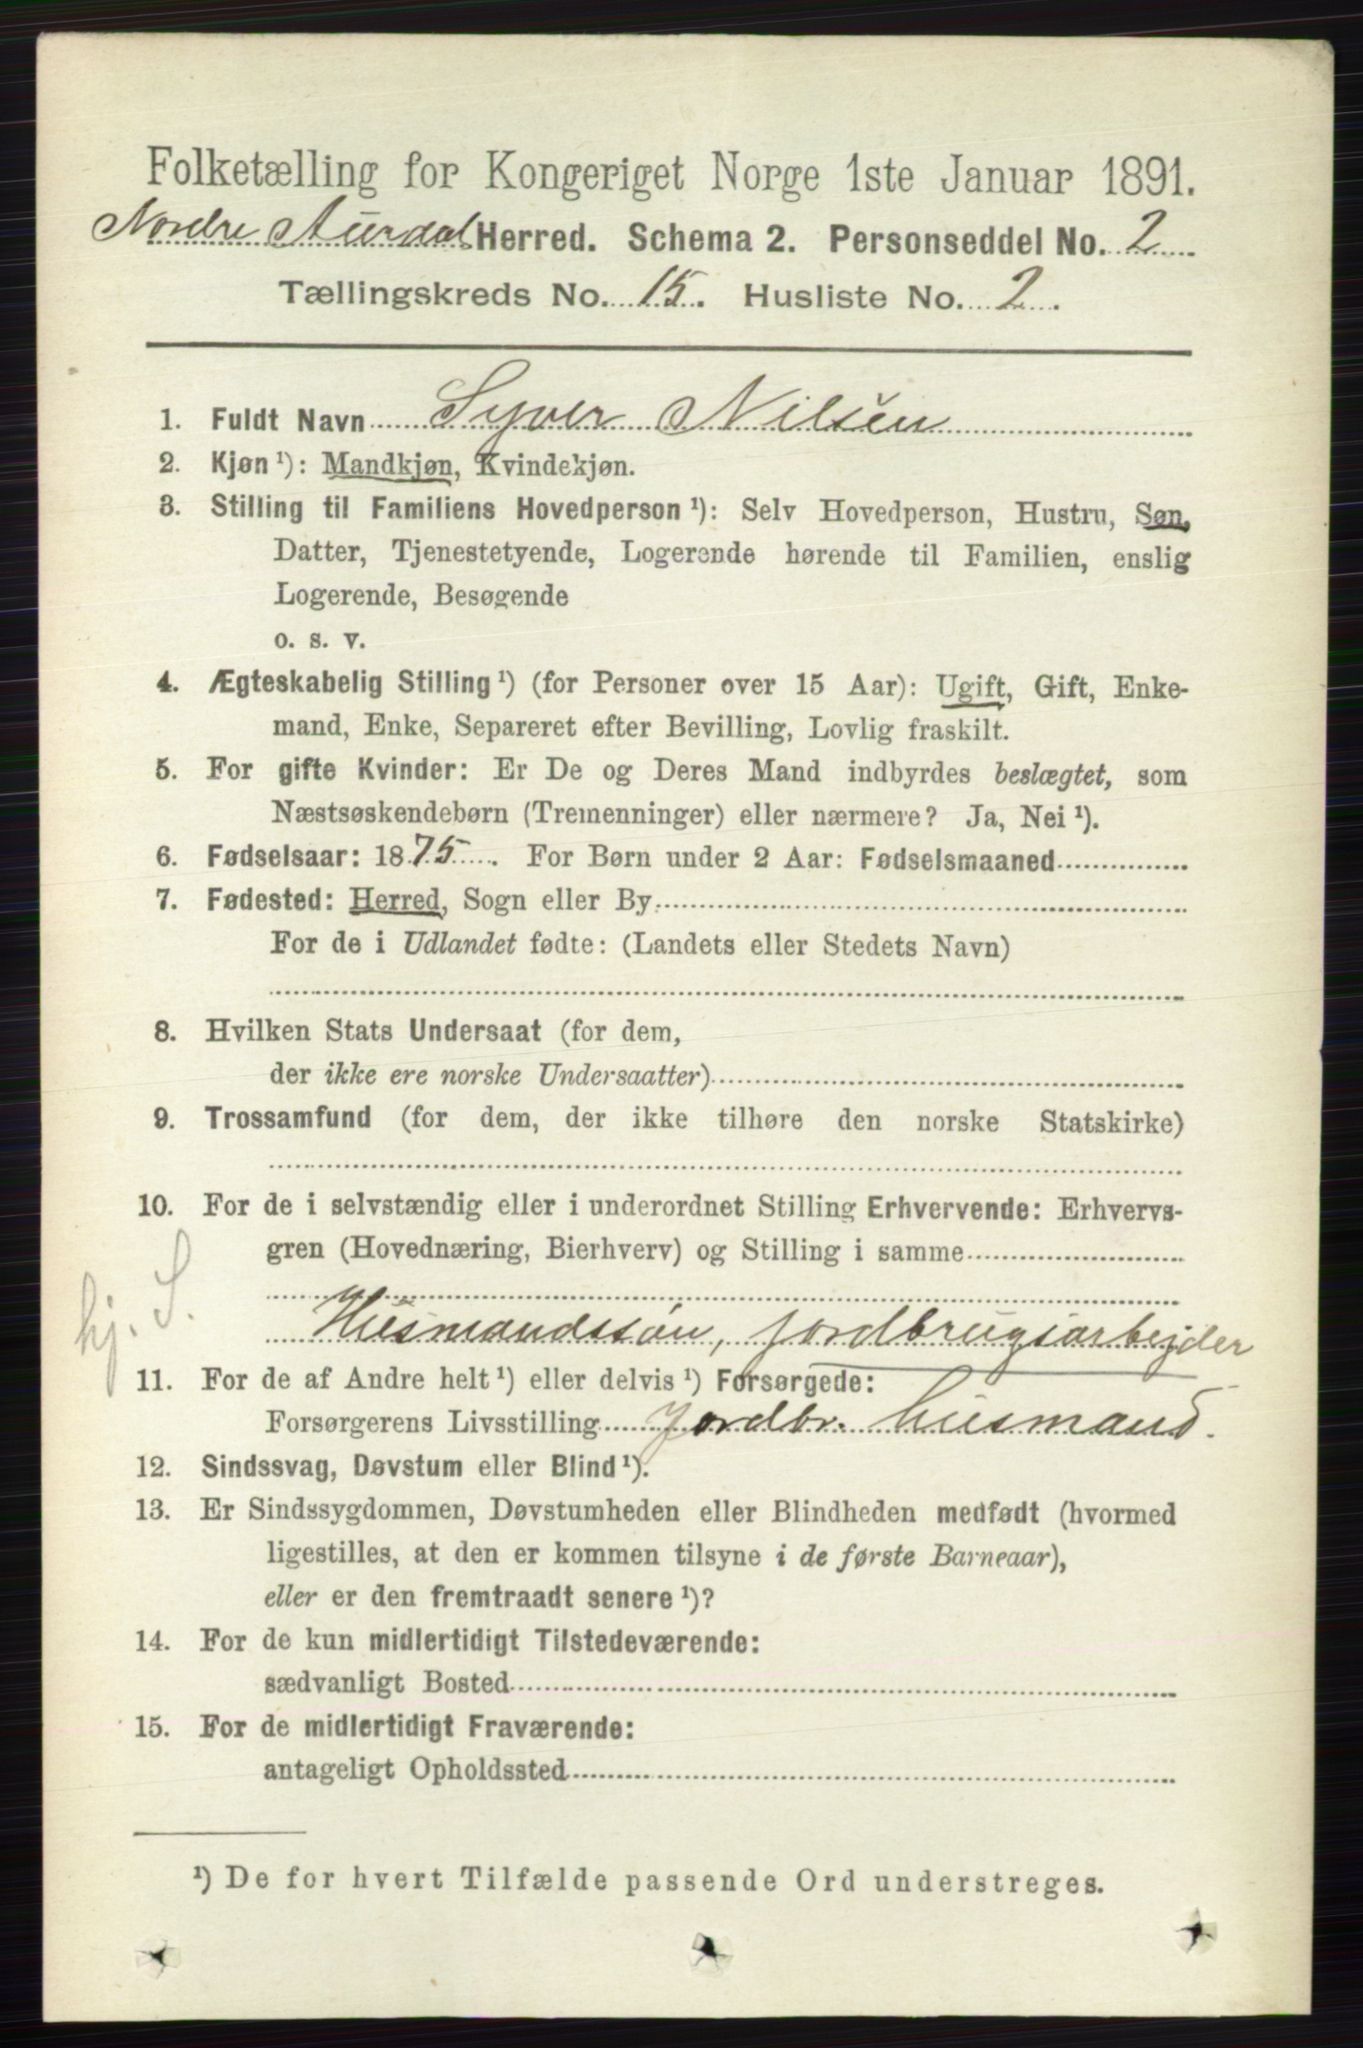 Folketælling for Kongeriget Norge 1ste Januar 1891.
Nordre Aurdal Herred. Schema 2. Personseddel No. 2
Tællingskreds No. 15. Husliste No. 2.
1. Fuldt Navn Syver Nilsen
2. Kjøn ¹): Mandkjøn, Kvindekjøn.
3. Stilling til Familiens Hovedperson ¹): Selv Hovedperson, Hustru, Søn,
Datter, Tjenestetyende, Logerende hørende til Familien, enslig
Logerende, Besøgende
o. s. v.
4. Ægteskabelig Stilling ¹) (for Personer over 15 Aar): Ugift, Gift, Enke-
mand, Enke, Separeret efter Bevilling, Lovlig fraskilt.
5. For gifte Kvinder: Er De og Deres Mand indbyrdes beslægtet, som
Næstsøskendebørn (Tremenninger) eller nærmere? Ja, Nei ¹).
6. Fødselsaar: 1875. For Børn under 2 Aar: Fødselsmaaned
7. Fødested: Herred, Sogn eller By
For de i Udlandet fødte: (Landets eller Stedets Navn)
8. Hvilken Stats Undersaat (for dem,
der ikke ere norske Undersaatter)
9. Trossamfund (for dem, der ikke tilhøre den norske Statskirke)
10. For de i selvstændig eller i underordnet Stilling Erhvervende: Erhvervs-
gren (Hovednæring, Bierhverv) og Stilling i samme
hj. S.
Husmandssøn, jordbrugsarbejder
11. For de af Andre helt ¹) eller delvis ¹) Forsørgede:
Forsørgerens Livsstilling Jordbr. husmand.
12. Sindssvag, Døvstum eller Blind ¹).
13. Er Sindssygdommen, Døvstumheden eller Blindheden medfødt (hvormed
ligestilles, at den er kommen tilsyne i de første Barneaar),
eller er den fremtraadt senere ¹)?
14. For de kun midlertidigt Tilstedeværende:
sædvanligt Bosted
15. For de midlertidigt Fraværende:
antageligt Opholdssted
¹) De for hvert Tilfælde passende Ord understreges.